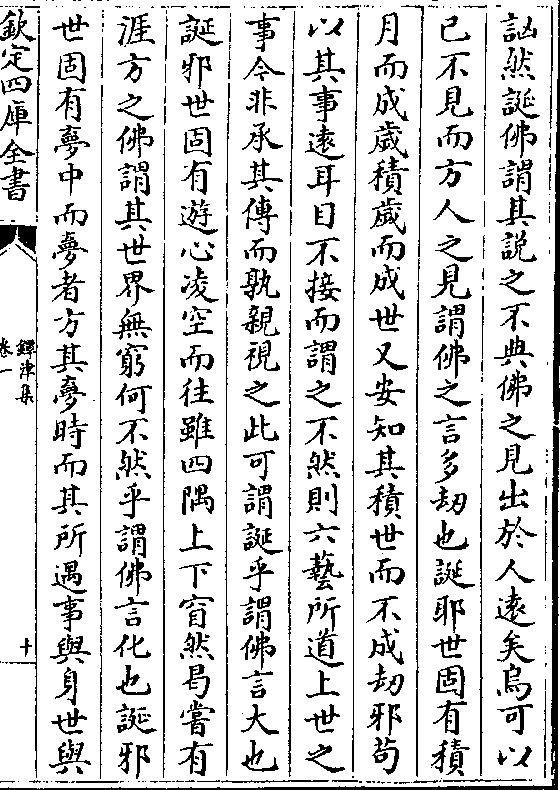 訕然誕佛謂其説之不典佛之見出於人逺矣烏可以
已不見而方人之見謂佛之言多刼也誕耶世固有積
月而成歲積歲而成世又安知其積世而不成刼邪茍
以其事逺耳目不接而謂之不然則六藝所道上世之
事今非承其傳而孰親視之此可謂誕乎謂佛言大也
誕邪世固有遊心凌空而往雖四隅上下窅然曷嘗有
涯方之佛謂其世界無窮何不然乎謂佛言化也誕邪
世固有夢中而夢者方其夢時而其所遇事與身世與
欽定四庫全書
鐔津集
卷一
十